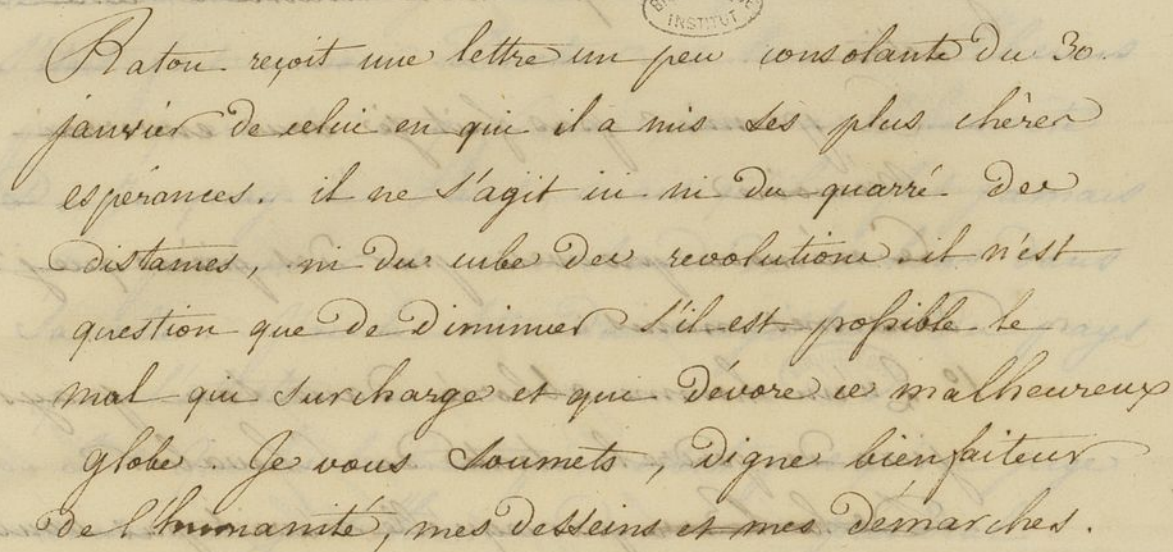 INSTITUT
Raton reçoit une lettre un peu consolante du 30
janvier de celui en qui il a mis ses plus chères
espérances. il ne s'agit ici ni du quarré des
distances, ni du cube des revolutions. il n'est
question que de diminuer s'il est possible le
mal qui surcharge et qui dévore ce malheureux
globe. Je vous soumets, digne bienfaiteur
de l'humanité, mes desseins et mes démarches.